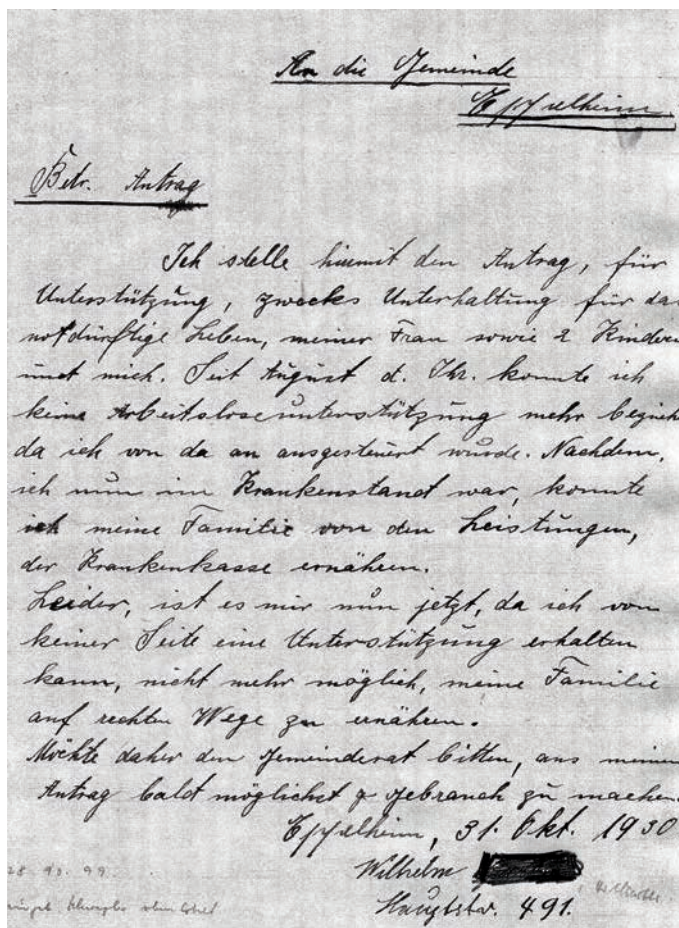 An die Gemeinde
Eppelheim
Betr. Antrag
Ich stelle hiemit den Antrag, für
Unterstützung, zwecks Unterhaltung für das
notdürftige Leben, meiner Frau sowie 2 Kindern
und mich. Seit August d. Jhr. konnte ich
keine Arbeitsloseunterstützung mehr bezieh
da ich von da an ausgesteuert wurde. Nachdem,
ich nun im Krankenstand war, konnte
ich meine Familie von den Leistungen,
der Krankenkasse ernähren.
Leider, ist es mir nun jetzt, da ich von
keiner Seite eine Unterstützung erhalten
kann, nicht mehr möglich, meine Familie
auf rechten Wege zu ernähren.
Möchte daher den Gemeinderat bitten, aus meinem
Antrag bald möglichst Gebrauch zu machen.
Eppelheim, 31. Okt. 1930
Wilhelm
Hauptstr. 491.